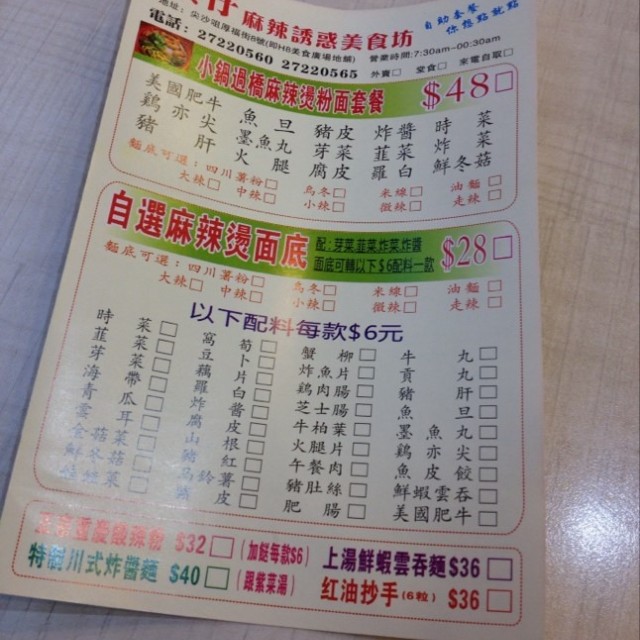 仔麻辣誘惑美食坊
自助套餐
你想點就點
地址：尖沙咀厚福街8號(即H8美食廣場地舖)
營業時間:7:30am~00:30am
電話：27220560 27220565
外賣□ 堂食□ 來電自取□
小鍋過橋麻辣燙粉面套餐 $48□
美國肥牛 魚旦 豬皮 炸醬 時菜
鷄亦尖 墨魚丸 芽菜 韮菜 炸菜
豬肝 火腿 腐皮 羅白 鮮冬菇
麵底可選：四川薯粉□ 烏冬□ 米線□ 油麵□
大辣□ 中辣□ 小辣□ 微辣□ 走辣□
自選麻辣燙面底
配：芽菜.韮菜.炸菜.炸醬
面底可轉以下$6配料一款
$28□
麵底可選：四川薯粉□ 烏冬□ 米線□ 油麵□
大辣□ 中辣□ 小辣□ 微辣□ 走辣□
以下配料每款$6元
時菜□
韮菜□
芽菜□
海帶□
青瓜□
雲耳□
窩筍□
豆卜□
藕片□
羅白□
炸醬□
腐皮□
蟹柳□
炸魚片□
鷄肉腸□
芝士腸□
牛柏葉□
火腿片□
午餐肉□
豬肚絲□
肥腸□
牛丸□
貢丸□
豬肝□
魚旦□
墨魚丸□
鷄亦尖□
魚皮餃□
鮮蝦雲吞□
美國肥牛□
正宗重慶酸辣粉 $32□ (加餸每款$6)
上湯鮮蝦雲吞麵$36□
特制川式炸醬麵 $40□ (跟紫菜湯)
红油抄手(6粒) $36□